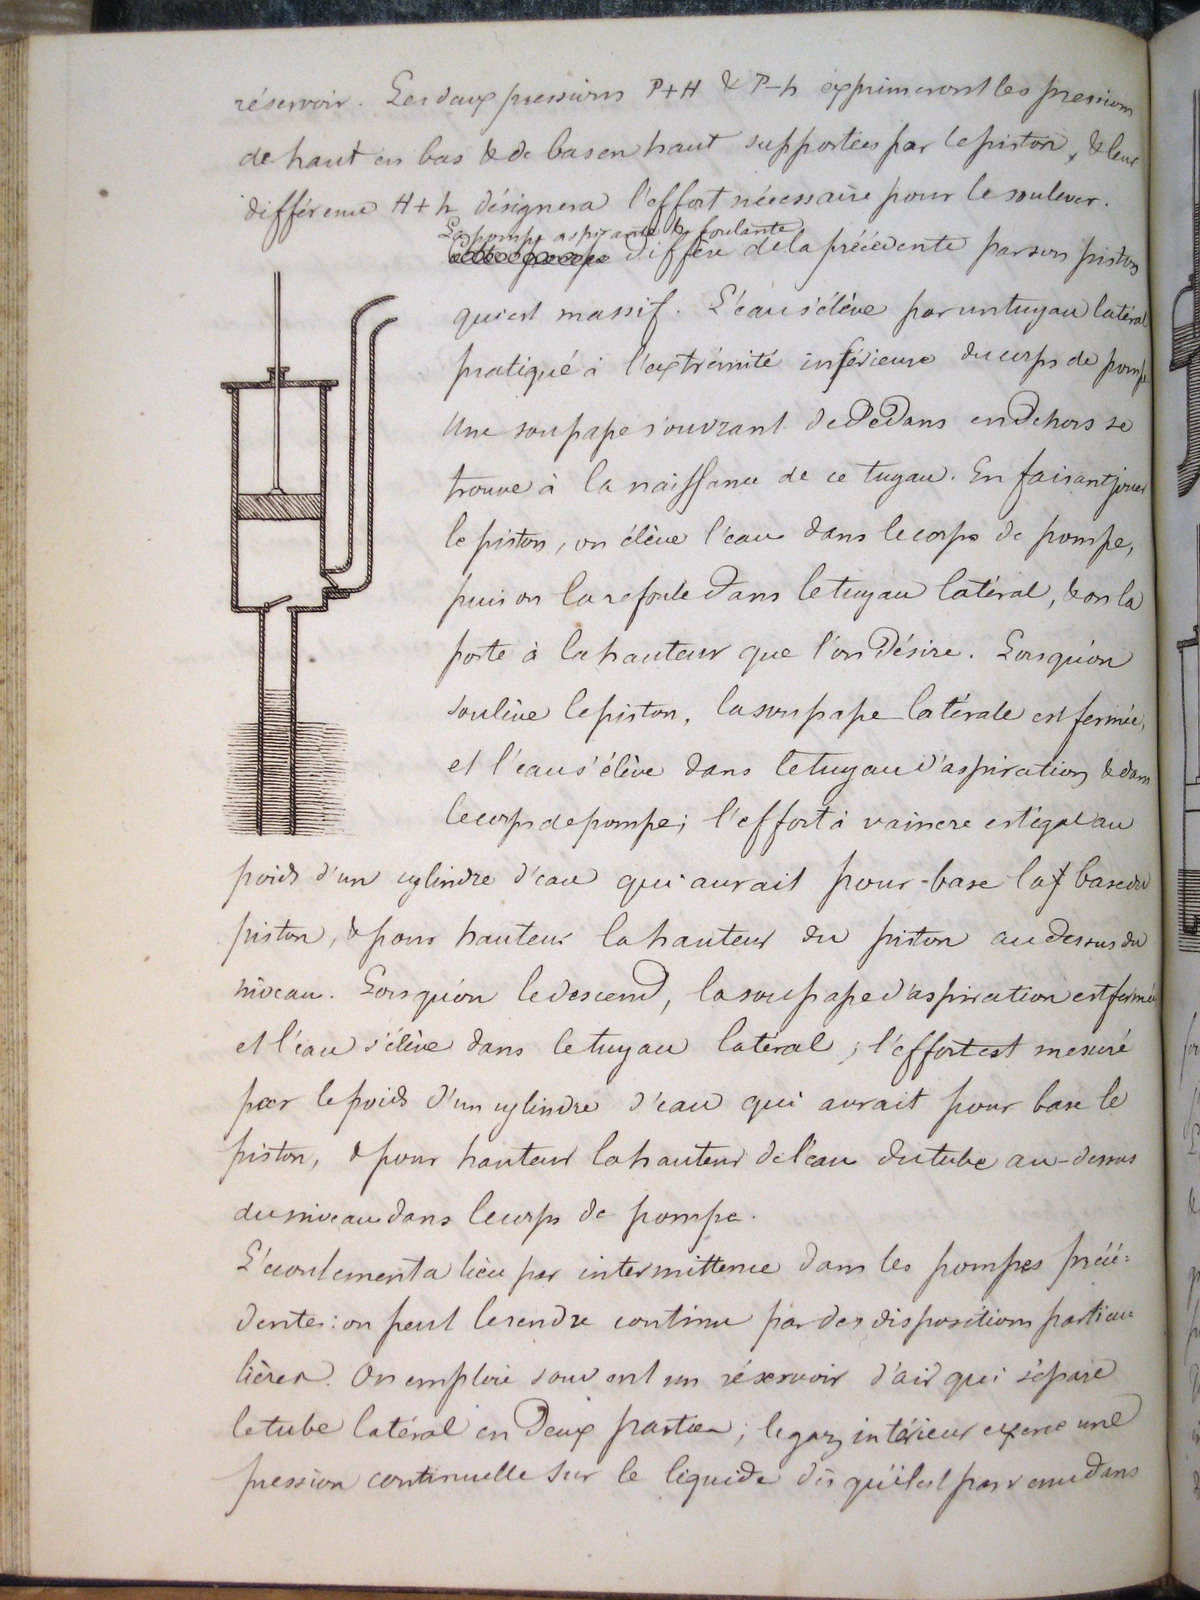 réservoir. Les deux pressions P+H & P-h exprimeront les pressions
de haut en bas & de bas en haut supportées par le piston, & leur
différence H+h désignera l'effort nécessaire pour le soulever.
La pompe aspirante & foulante
diffère de la précédente par son piston
qui est massif. L'eau s'élève par un tuyau latéral
pratiqué à l'extrémité inférieure du corps de pompe
Une soupape s'ouvrant de dedans en dehors se
trouve à la naissance de ce tuyau. En faisant jouer
le piston, on élève l'eau dans le corps de pompe,
puis on la refoule dans le tuyau latéral, & on la
porte à la hauteur que l'on désire. Lorsqu'on
soulève le piston, la soupape latérale est fermée,
et l'eau s'élève dans le tuyau d'aspiration & dans
le corps de pompe; l'effort à vaincre est égal au
poids d'un cylindre d'eau qui aurait pour base la base du
piston, & pour hauteur la hauteur du piston au dessus du
niveau. Lorsqu'on le descend, la soupape d'aspiration est fermée
et l'eau s'élève dans le tuyau latéral; l'effort est mesuré
par le poids d'un cylindre d'eau qui aurait pour base le
piston, & pour hauteur la hauteur de l'eau du tube au-dessus
du niveau dans le corps de pompe.
L'écoulement a lieu par intermittence dans les pompes précé=
dentes: on peut le rendre continu par des dispositions particu
lières. On emploie souvent un réservoir d'air qui sépare
le tube latéral en deux parties; le gaz intérieur exerce une
pression continuelle sur le liquide dès qu'il est parvenu dans